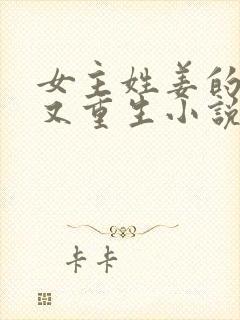 女主姓姜的
又重生小说
卡卡